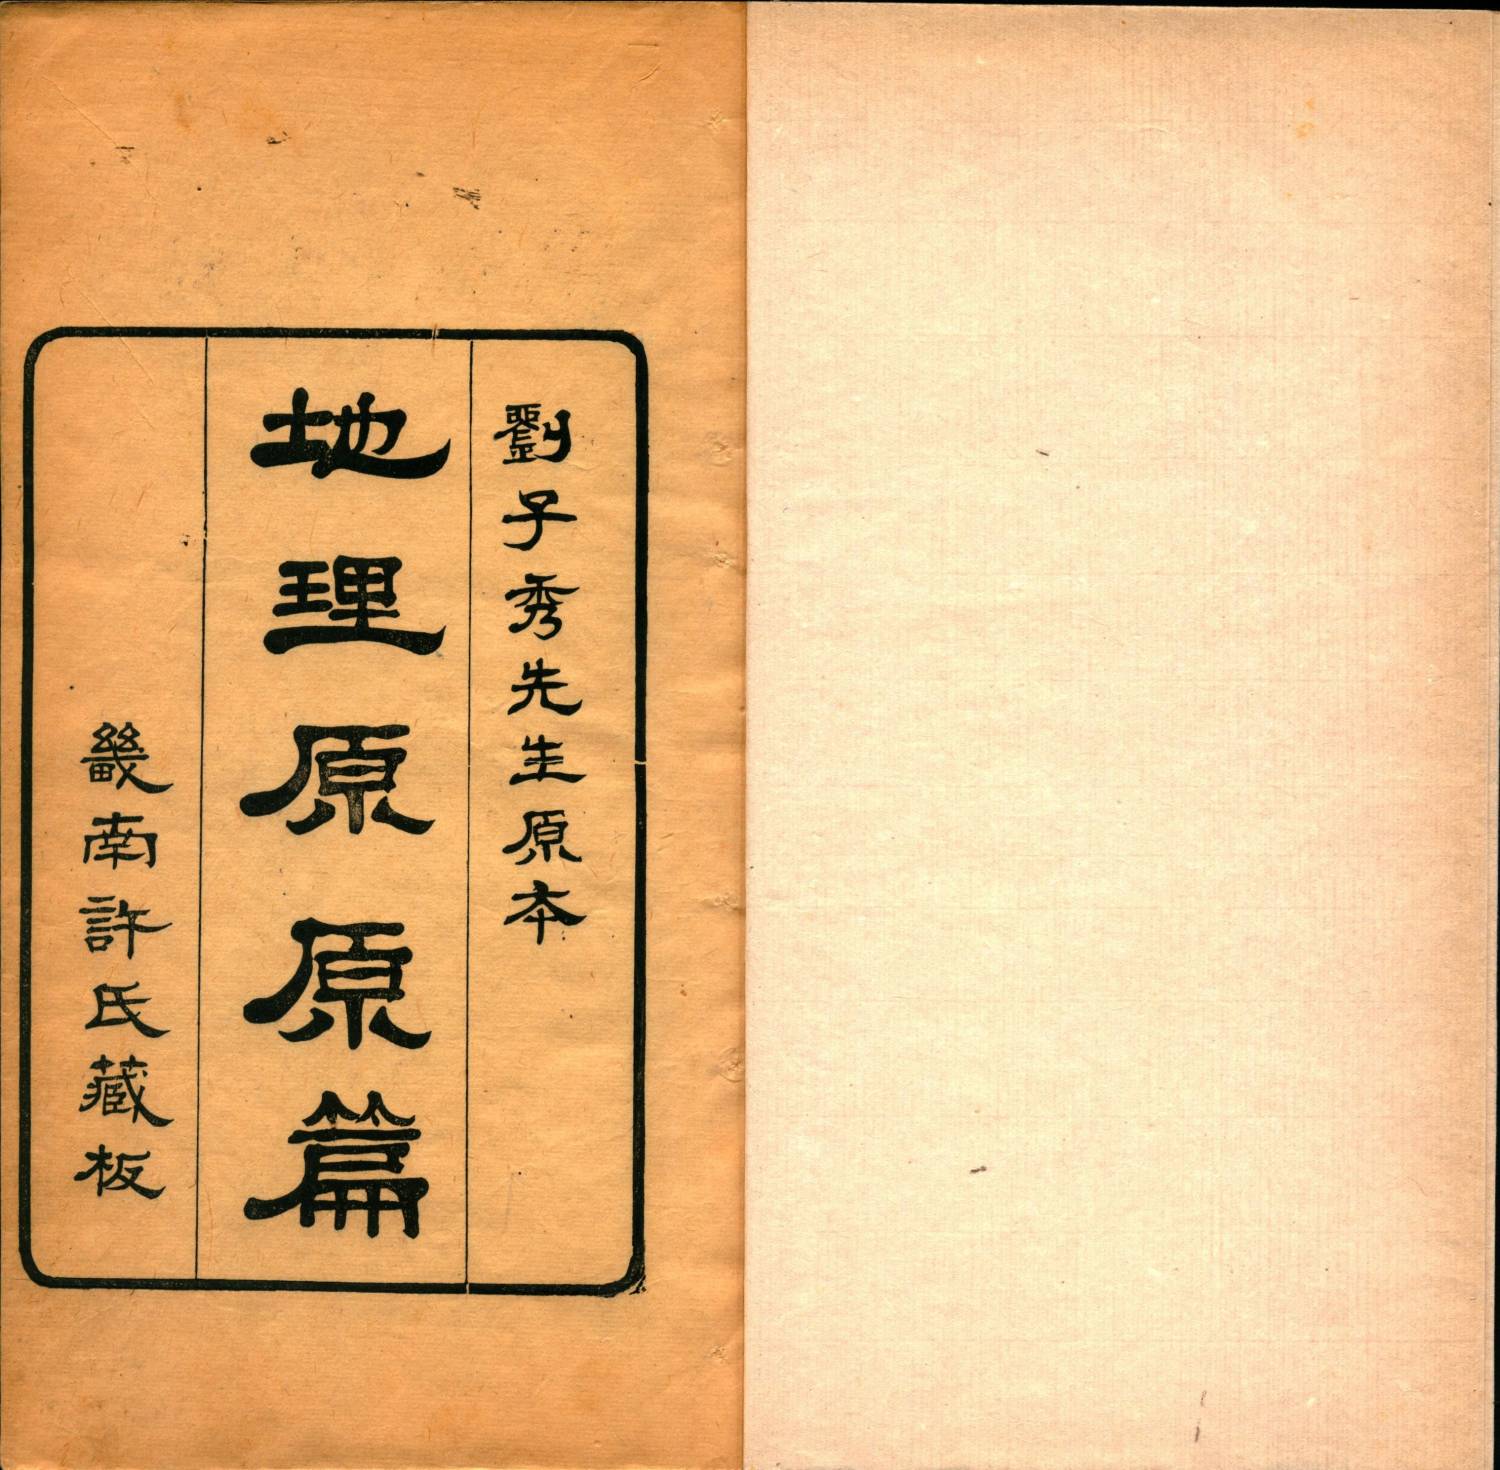 劉子秀先生原本
地理原原篇
畿南許氏藏板